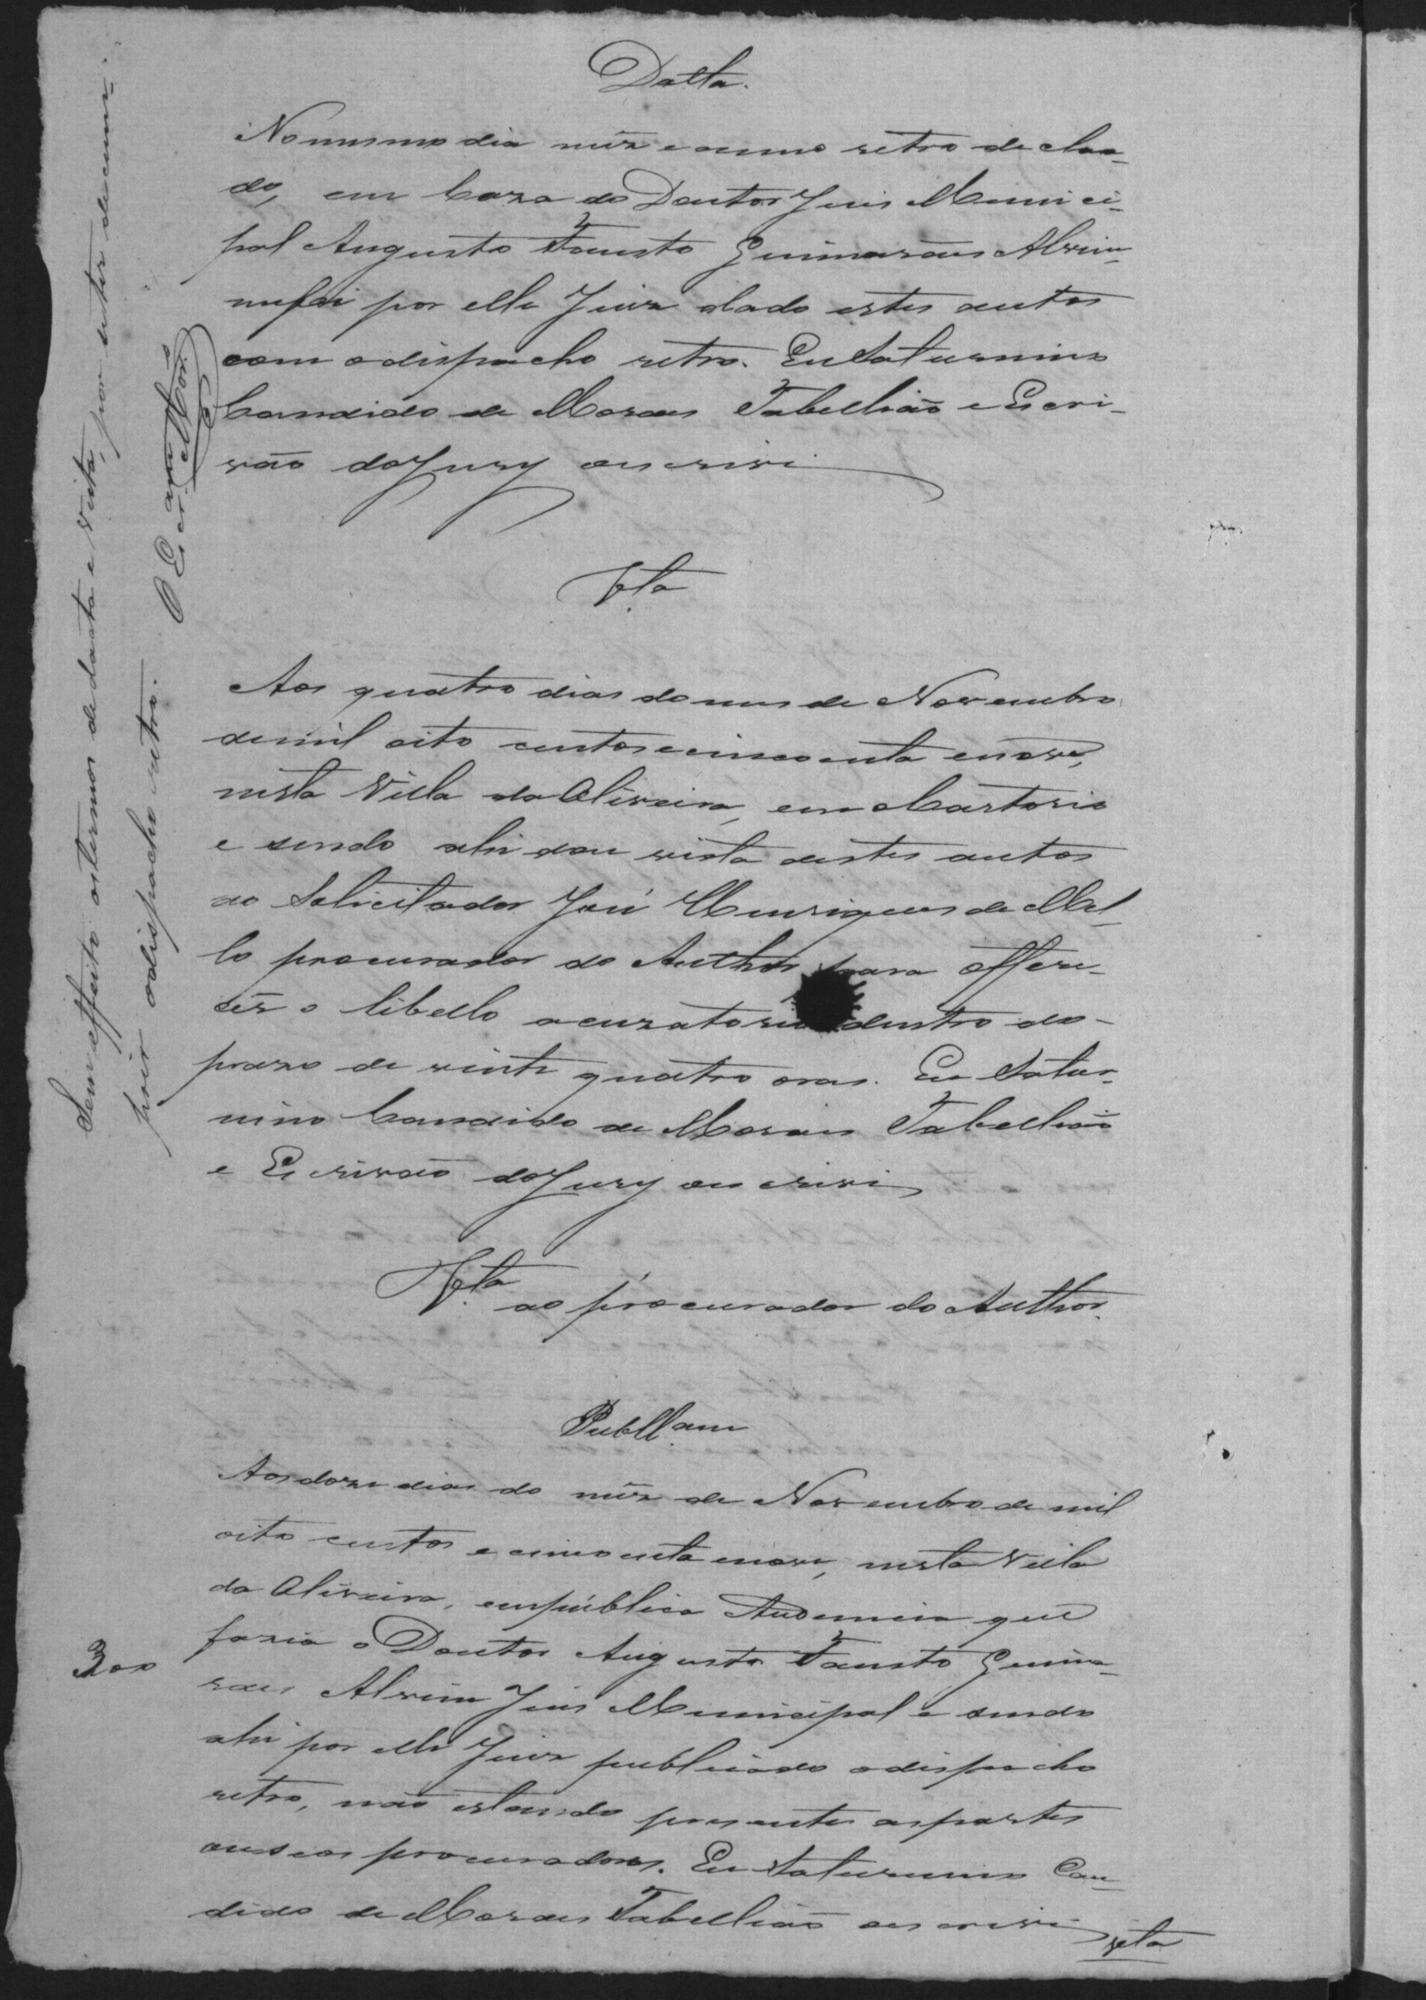 Datta.
No mesmo dia mêz e anno retro decla-
do, em Caza do Doutor Juis Munici-
pal Augusto Fausto Guimaraes Alvim
me foi por elle Juiz dado estes autos
com o dispacho retro. Eu Saturnino
Candido de Moraes Tabellião e Escri-
vão do Jury o escrevi
V.ta
Aos quatro dias do mes de Novembro
de mil oito centos e cincoenta e nove,
nesta Villa da Oliveira, em Cartorio
e sendo ahi dou vista destes autos
ao Solicitador José Henriques de Mel-
lo procurador do Author para offere-
cêr o libello acuzatorio dentro do
prazo de vinte quatro oras. Eu Satur-
nino Candido de Moraes Tabellião
e Escrivão do Jury o escrevi
V.ta ao procurador do Author.
Publ.am
Aos doze dias do mêz de Novembro de mil
oito centos e cincoenta e nove, nesta Villa
da Oliveira, em pública Audiencia que
fazia o Doutor Augusto Fausto Guima-
raes Alvim Juis Municipal e sendo
ahi por elle Juiz publicado o dispacho
retro, não estando presentes as partes
ou seos procuradores. Eu Saturnino Can-
dido de Moraes Tabellião o escrevi
V.ta
300
Sem effeito os termos de data e vista, por entes de cum-
prir o dispacho retro.
O Escr.am
Mor.s